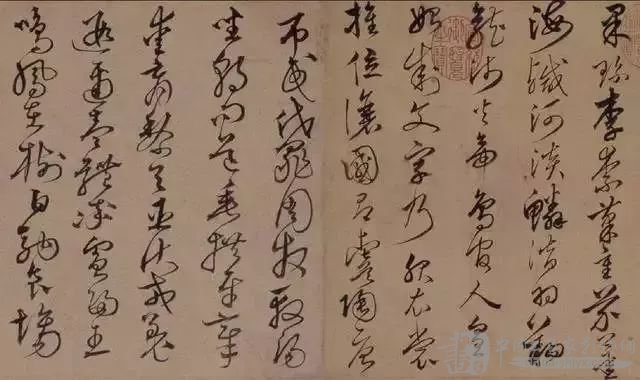 果珍李柰菜重芥薑
海鹹河淡鱗潛羽翔
龍師火帝鳥官人皇
始制文字乃服衣裳
推位讓國有虞陶唐
弔民伐罪周發殷湯
坐朝問道垂拱平章
愛育黎首臣伏戎羌
遐邇壹體率賓歸王
鳴鳳在樹白駒食場